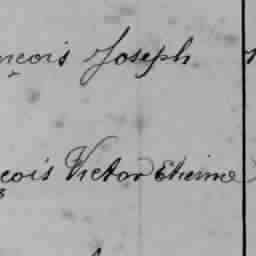 ncois Joseph
cois Victor Etienne